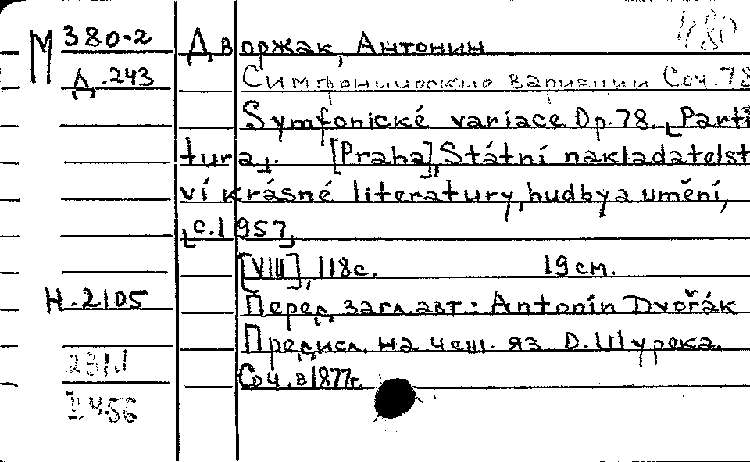 М 380-2
Д.243
480
Дворжак, Антонин
Симфонические вариации Соч.78
Symfonické variace Op.78. [Parti
tura]. [Praha], Státní nakladatelst
ví krásné literatury, hudby a umění,
[c.1957]
[VIII], 118с. 19см.
Н.2105
Перед загл.авт.: Antonín Dvořák
Предисл. на чеш. яз О.Шурека.
Соч. в 1877г.